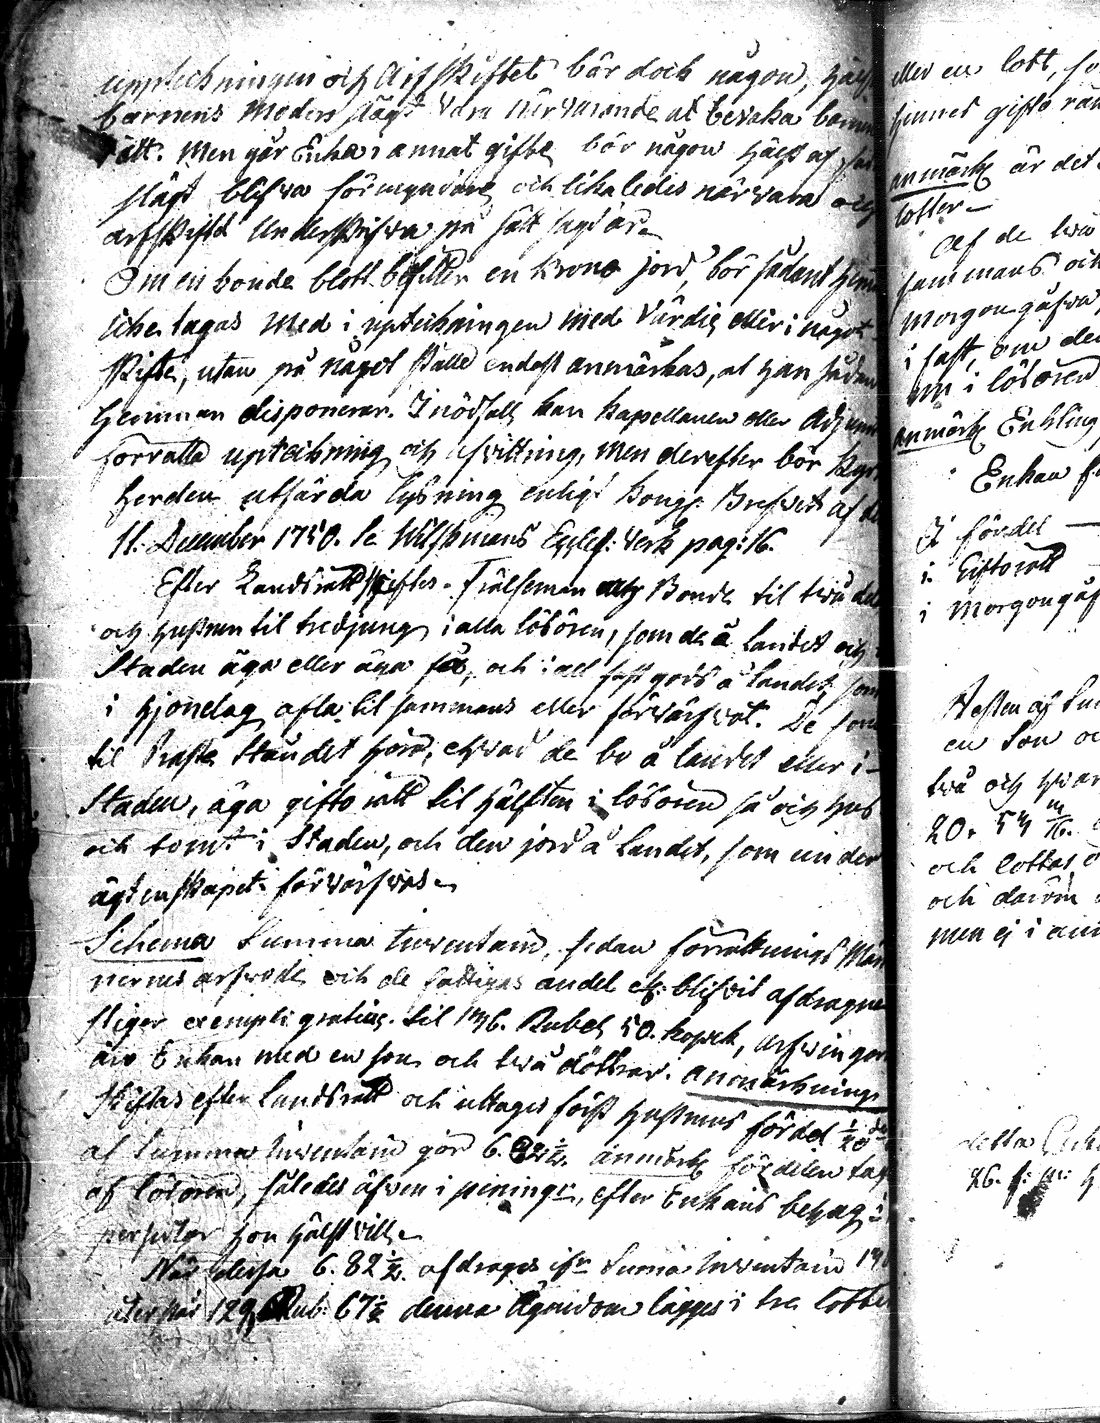 uppteckningen och Arfskiftet bör dock någon, hälst
barnens Moders slägt vara närvarande at bevaka barnens
rätt. Men går Enkan i annat gifte, bör någon hälst af
slägt blifva förmyndare och likaledes närvara och
arfskiftet Underskrifva på sätt sagdt är.
Om en bonde blott besitter en Krono jord, bör sådant hemman
icke tagas med i upteckningen med Värdie eller i något
skifte, utan på något ställe endast anmärkas, at han sådant
Hemman disponerar. I nödfall kan Kapellanen eller Adjuncten
förrätta upteckning och afvittring, men derefter bör Kyrko
herden utfärda lysning enligt Kongl. Brefvet af den
11. December 1750. se Wilskmans Eccles: Verk pag: 16.
Efter Landsrätt skiftes. Frälseman och Bonde til två del
och hustrun til tredjung i alla lösören, som de å landet och
Staden äga eller äga få, och i all fast gods å landet, som
i hjonelag afla til sammans eller förvärfvat. De som
til Präste ståndet höra, ehvad de bo å landet eller i
Staden, äga giftorätt til hälften i lösören så och hus
och tomt i Staden, och den jord å landet, som under
ägtenskapet förvärfvas.
Schema Summa Inventarii, sedan förrättnings Män
nernes arfvode och de fattigas andel blifvit afdragne
stiger exempli gratia. til 136. Rubel 50. kopek, arfvingar
äro Enkan med en son och två döttrar. anmärkning
Skiftas efter Landsrätt och uttages först hustruns fördel 1/20 del
af Summa Inventarii gör 6. 82 1/2. anmärk fördelen tages
af lösören, således äfven i peningr, efter Enkans behag
persedlar hon hälst vill.
När dessa 6. 82 1/2. afdrages ifr Suma Inventarii 13
återstår 129 Rub: 67 1/2 denna Ägendom lägges i tre lotter
eller en lott, så
hennes gifto rätt
anmärk är det
lotter
Af de två
sammans och
Morgongåfva,
i fast, om den
i lösören
anmärk Enkling
Enkan
I fördel
i Giftorätt
i Morgongåf
Resten af Sum
en Son oc
två och hvar
20. 53
och lottas
och därom
men ej i
detta
26. §.